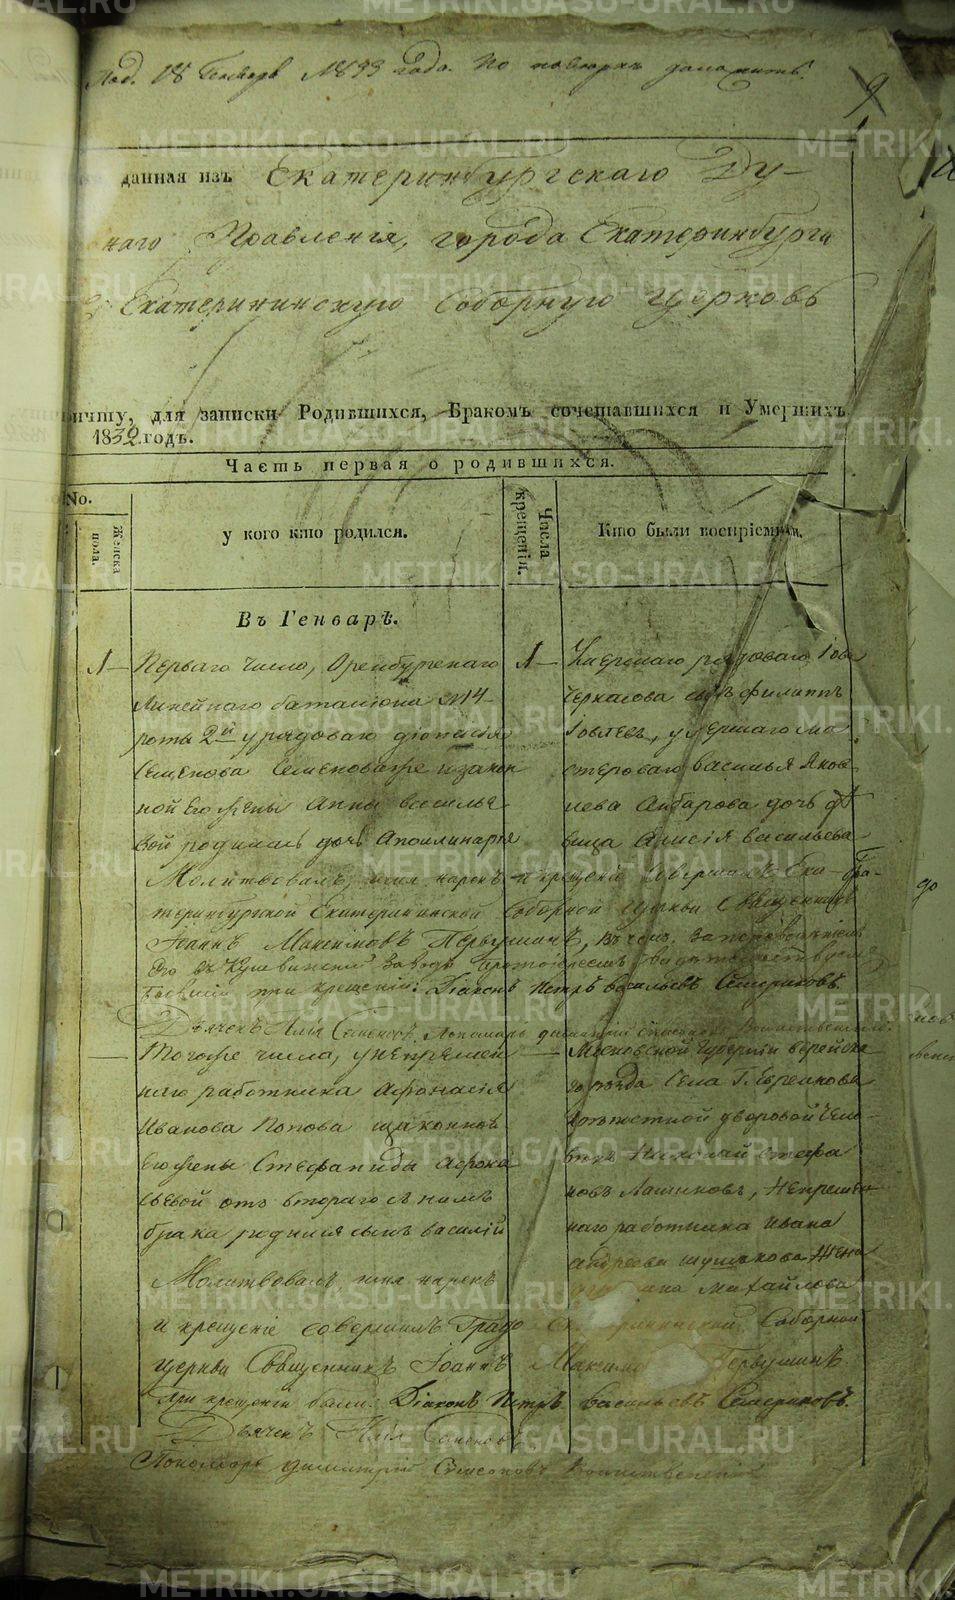 Под. 18 Генваря 1833 года. По повторк доложить.
9
данная изъ Екатеринбургскаго Ду-
наго Правленія, города Екатеринбурга
Екатерининскую Соборную церковь
вичшу, для записки Родившихся, Бракомъ сочетавшихся и Умершихъ
1832 годъ.
Часть первая о родившихся.
No.
Женска пола.
у кого кто родился.
Числа крещенія.
Кто были воспріемники.
Въ Генварѣ.
1 — Перваго числа, Оренбургскаго
Линейнаго баталіона №14
роты 2й у рядоваго Діонисія
Семенова Семенова же и закон
ной его жены Анны Василье
вой родилась дочь Аполинарія
1 — Умершаго рядоваго Іова
Черкасова сынъ Филиппъ
Іовлевъ, умершаго ма
стероваго Василья Яков
лева Анбарова дочь дѣ
вица Анисія Васильева
Молитвовалъ, имя нарекъ и крещеніе совершалъ Ека- Гра-
теринбургской Екатерининской Соборной церкви Священникъ
Іоаннъ Максимовъ Первушинъ, въ чемъ
его въ Кушвинскій заводъ Протоіереемъ
бывшіе при крещеніи: Діаконъ Петръ Васильевъ Семериковъ.
Дьячекъ Илія Пономарь Димитрій
Тогоже числа, у непремен
наго работника Афонасія
Иванова Попова и законной
его жены Стефаниды Афонас
ьевой отъ втораго съ нимъ
брака родился сынъ Василій
— Московской Губерніи Верейска
го уезда Села Г. Евреинова
крепостной дворовой чело-
векъ Николай Стефа
новъ Лашиновъ, непремен-
наго работника Ивана
Андреева Шушакова жена
Михайлова
Молитвовалъ, имя нарекъ
и крещеніе совершалъ Градо Соборной
церкви Священникъ Іоаннъ Максимо Первушинъ.
При крещеніи были: Діаконъ Петръ Васильевъ Семериковъ.
Дьячекъ Илія
Пономарь Димитрій Симеоновъ Воинственскій
METRIKI.GASO-URAL.RU